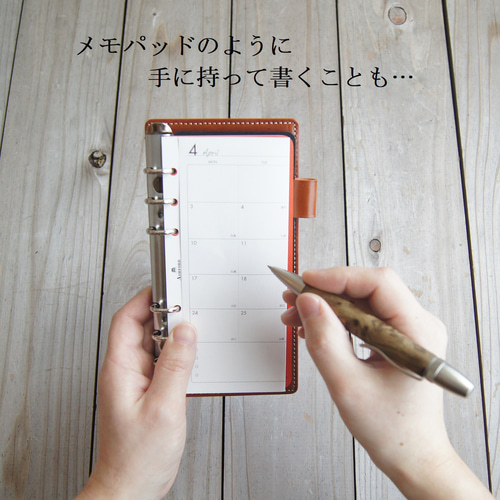 メモパッドのように
手に持って書くことも…
4 April
3 4
10 11
17 18
24 25